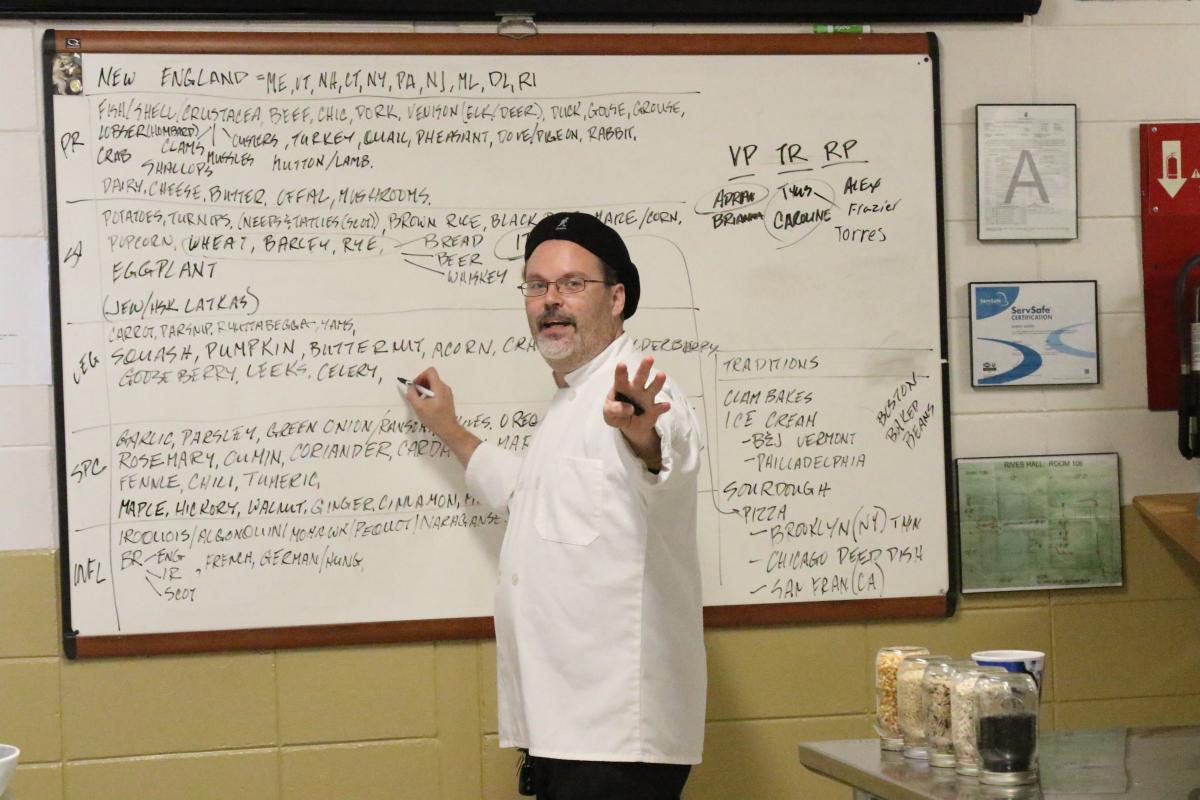 NEW ENGLAND = ME, VT, NH, CT, NY, PA, NJ, ML, DL, RI
PR
FISH/SHELL/CRUSTACEA, BEEF, CHIC, PORK, VENISON (ELK/DEER), DUCK, GOOSE, GROUSE,
LOBSER (HOMBARD) CLAMS OUSTERS, TURKEY, QUAIL, PHEASANT, DOVE/PIGEON, RABBIT,
CRAB SHALLOPS MUSSLES MUTTON/LAMB.
DAIRY, CHEESE, BUTTER, OFFAL, MUSHROOMS.
POTATOES, TURNIPS, (NEEPS & TATTIES (SCOT)), BROWN RICE, BLACK /CORN,
POPCORN, WHEAT, BARLEY, RYE, BREAD
BEER
WHISKEY
EGGPLANT
(JEW/HSK LATKAS)
VEG
CARROT, PARSNIP, YAMS,
SQUASH, PUMPKIN, BUTTERNUT, ACORN, CRA LDERBERRY
GOOSEBERRY, LEEKS, CELERY,
SPC
GARLIC, PARSLEY, GREEN ONION/ OREG
ROSEMARY, CUMIN, CORIANDER, CARDA
FENNLE, CHILI, TUMERIC,
MAPLE, HICKORY, WALNUT, GINGER, CINLAMON,
INFL
IROQUOIS/ALGONQUIN/MOHAWK/PEQUOT/NARAGANSE
BR ENG, FRENCH, GERMAN/HUNG,
IR
SCOT
VP TR RP
ADRIAN TYUS ALEX
BRIANNA CAROLINE Frazier
Torres
TRADITIONS
CLAM BAKES
ICE CREAM
- B&J VERMONT
- PHILLADELPHIA
BOSTON
BAKED
BEANS
SOURDOUGH
PIZZA
- BROOKLYN (NY) THIN
- CHICAGO DEEP DISH
- SAN FRAN (CA)
A
ServSafe
ServSafe
CERTIFICATION
RIVES HALL: ROOM 106
KANGOL